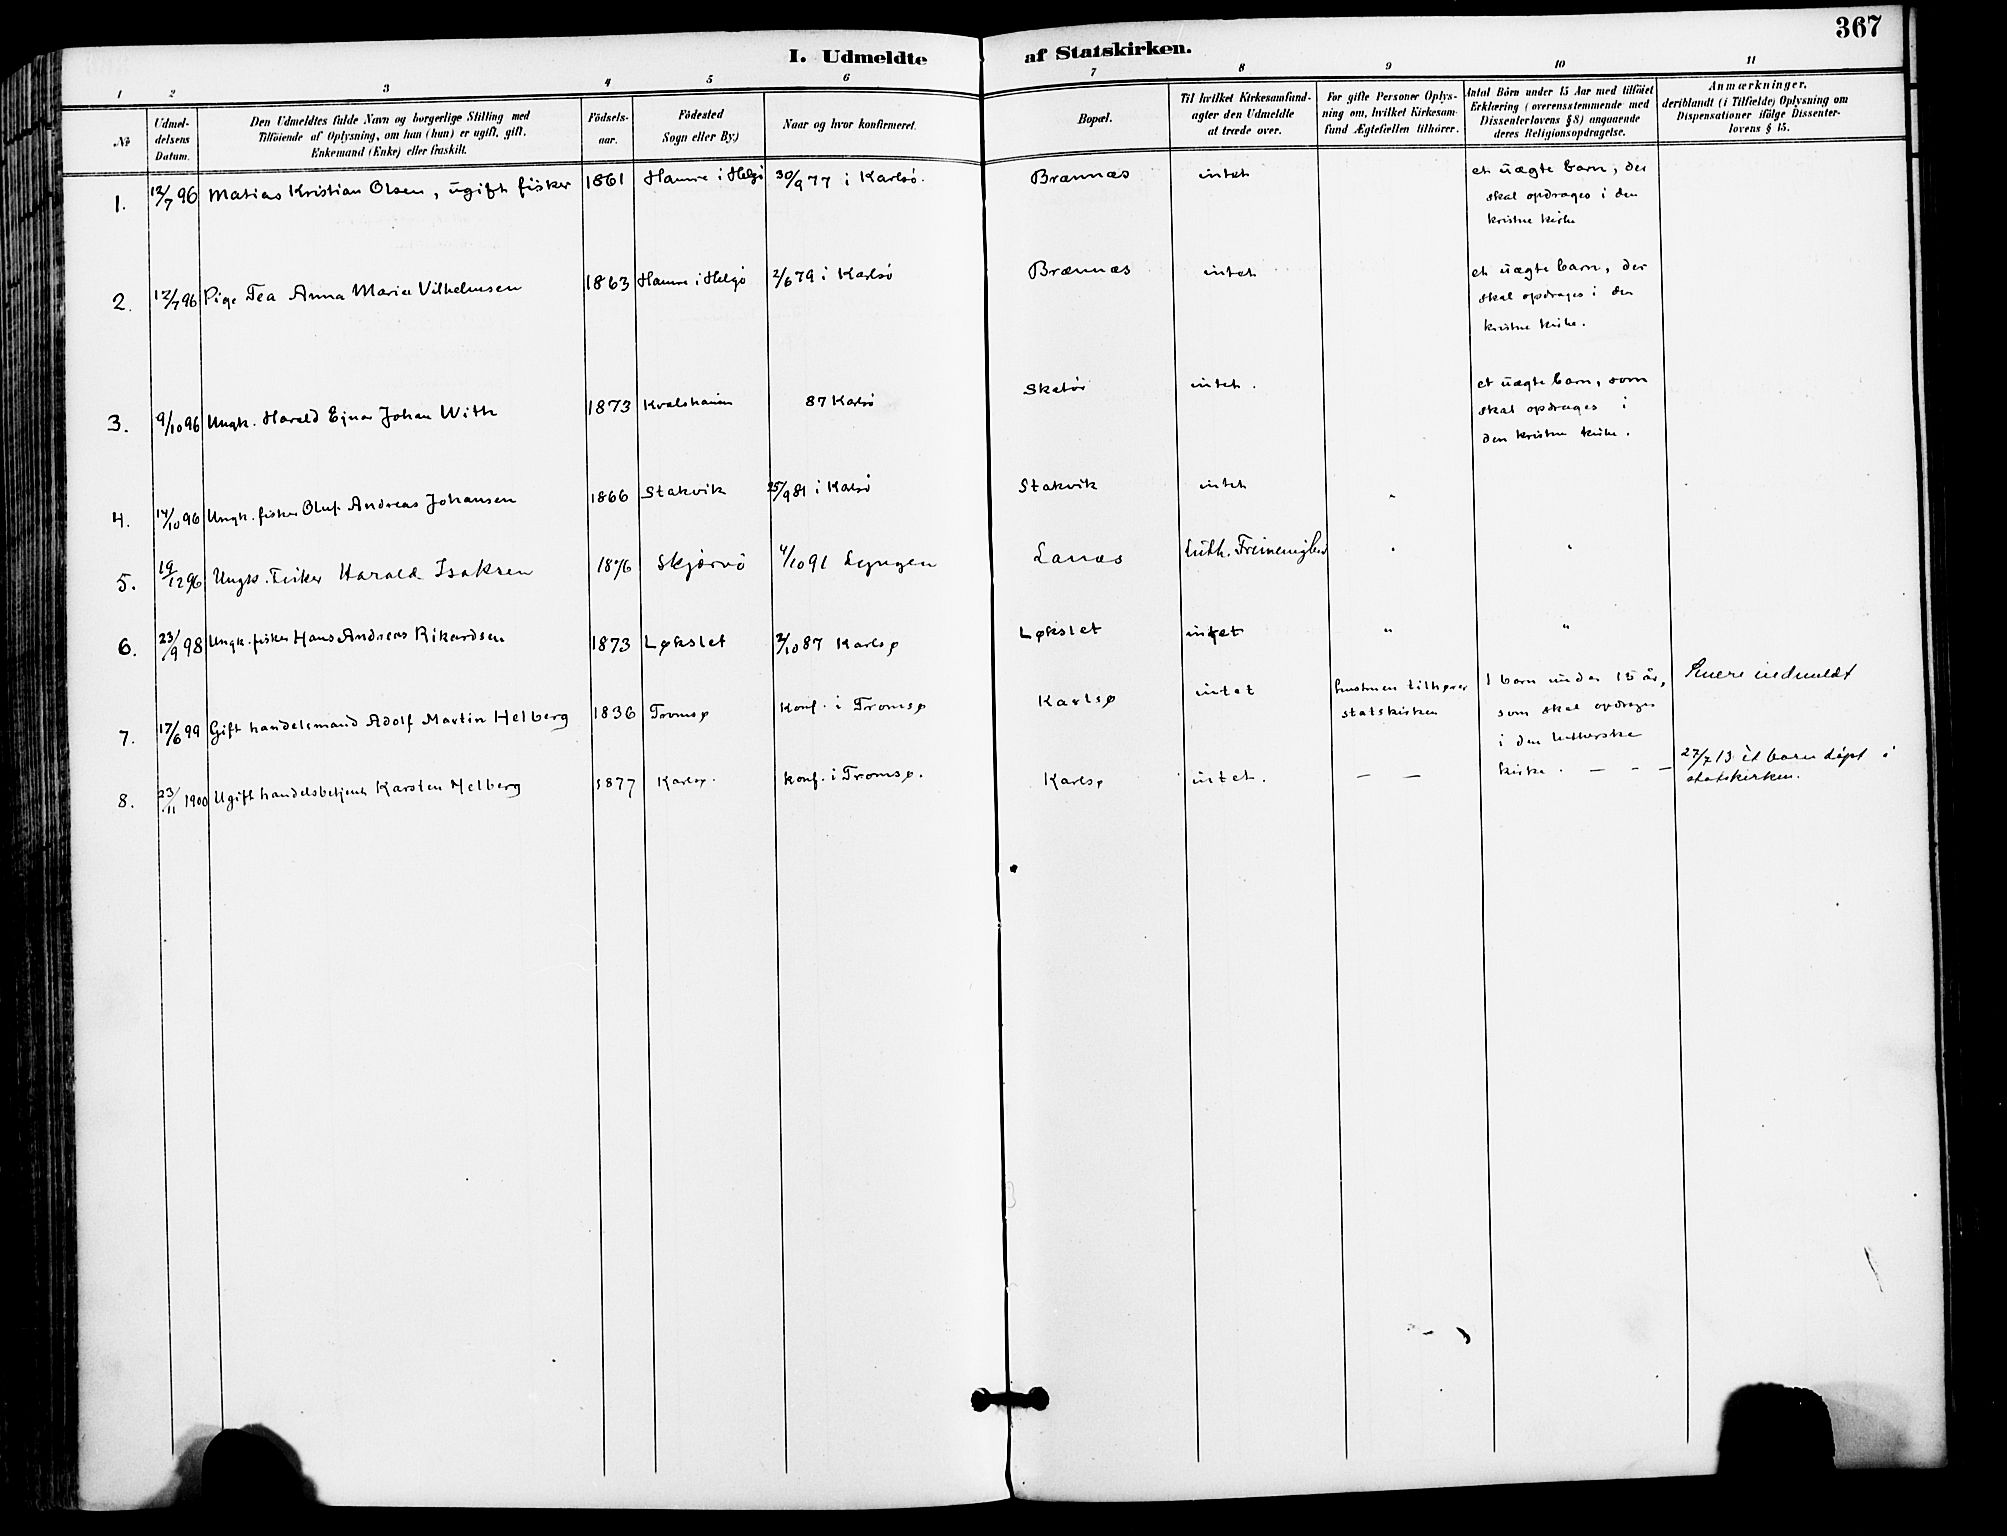 367
I. Udmeldte af Statskirken.
1 2 3 4 5 6 7 8 9 10 11
№
Udmel-
delsens
Datum.
Den Udmeldtes fulde Navn og borgerlige Stilling med
Tilföiende af Oplysning, om han (hun) er ugift, gift,
Enkemand (Enke) eller fraskilt.
Födsels-
aar.
Födested
Sogn eller By.)
Naar og hvor konfirmeret.
Bopæl.
Til hvilket Kirkesamfund-
agter den Udmeldte
at træde over.
For gifte Personer Oplys-
ning om, hvilket Kirkesam-
fund Ægtefællen tilhörer.
Antal Börn under 15 Aar med tilföiet
Erklæring (overensstemmende med
Dissenterlovens § 8) angaaende
deres Religionsopdragelse.
Anmærkninger,
deriblandt (i Tilfælde) Oplysning om
Dispensationer ifölge Dissenter-
lovens § 15.
1. 12/7 96 Matias Kristian Olsen, ugift fisker 1861 Hamre i Helgö 30/9 77 i Karlsö. Brænnæs intet et uægte barn, der
skal opdrages i den
kristne kirke
2. 12/7 96 Pige Tea Anna Marie Vilhelmsen 1863 Hamre i Helgö 2/6 79 i Karlsö Brænnæs intet et uægte barn, der
skal opdrages i den
kristne kirke.
3. 9/10 96 Ungk. Harald Ejnar Johan With 1873 Kvalshausen 87 Karlsö Skatör intet. et uægte barn, som
skal opdrages i
den kristne kirke.
4. 14/10 96 Ungk. fisker Oluf Andreas Johansen 1866 Stakvik 25/9 81 i Karlsö Stakvik intet "
5. 19/12 96 Ungk. Fisker Harald Isaksen 1876 Skjærvö 4/10 91 Lyngen Lanæs Luth. Frimenighed " "
6. 23/9 98 Ungk. fisker Hans Andreas Rikardsen 1873 Løkslet 2/10 87 Karlsø Løkslet intet " "
7. 17/6 99 Gift handelsmand Adolf Martin Helberg 1836 Tromsø konf. i Tromsø Karlsø intet hustruen tilhører
statskirken
1 barn under 15 år,
som skal opdrages
i den lutherske
kirke.
Senere indmeldt
8. 23/11 1900 Ugift handelsbetjent Karsten Helberg 1877 Karlsø. konf. i Tromsø. Karlsø intet. — — — - —
27/7 13 et barn døpt i
statskirken.